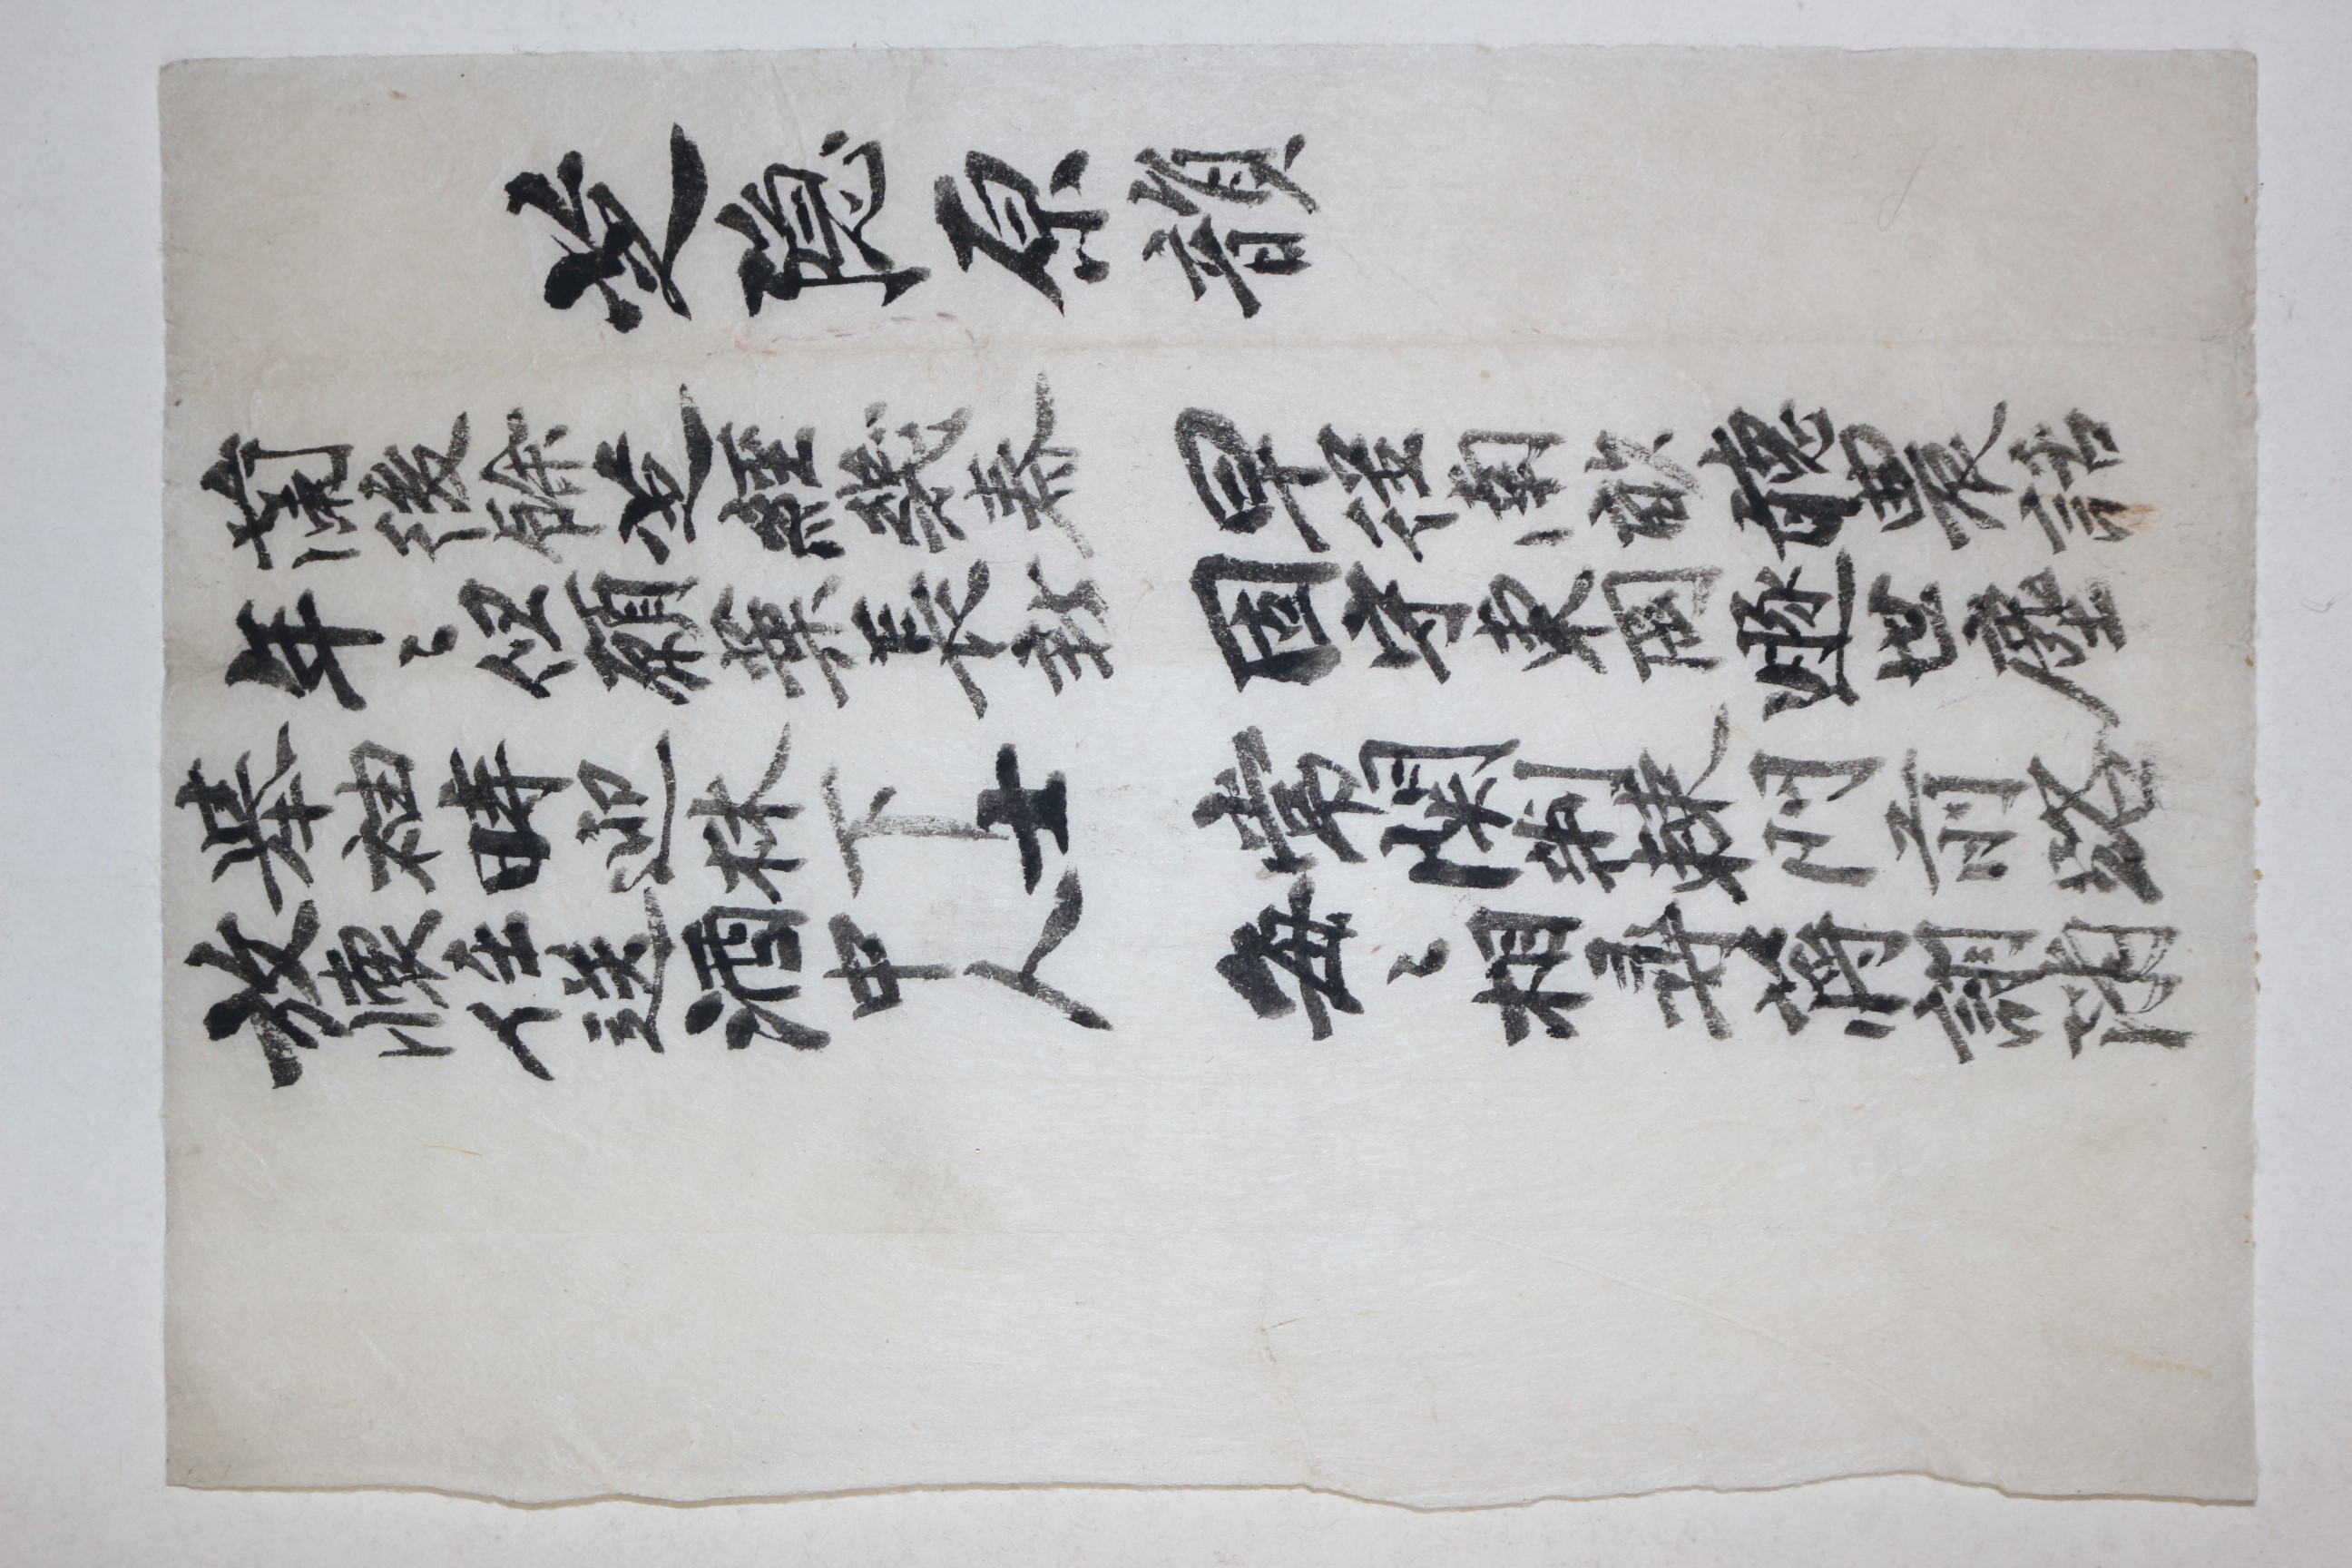 芝隐原韻
蘭後餘芝經幾春 早從南畝聽農話
年〻但願葉長新 固守東岡遯世塵
擧袖時迎林下士 常関荆棘門前路
放懷任送酒中人 每〻相尋蔣詡隣